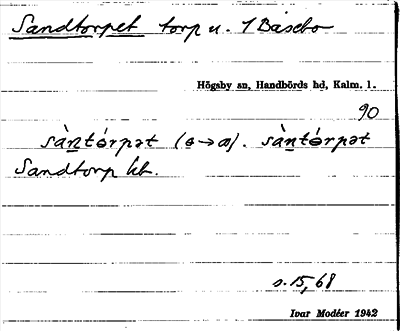 Sandtorpet torp u. 1 Båsebo
Högsby sn, Handbörds hd, Kalm. l.
90
sàntórpət (ɞ→ω). sàntɵ́rpət
Sandtorp kt.
s. 15, 68
Ivar Modéer 1942